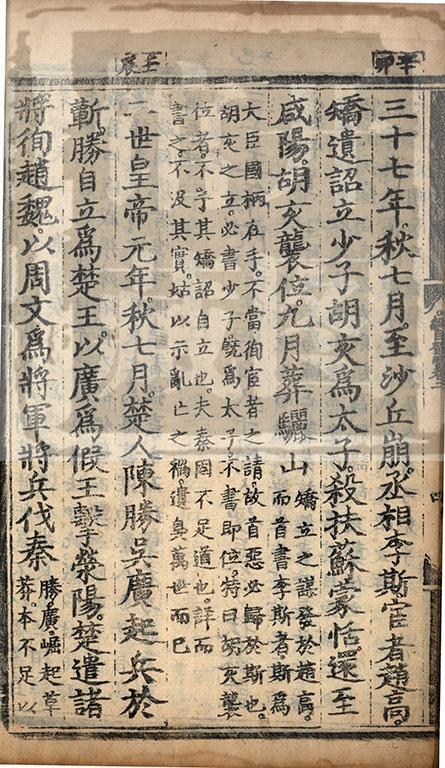 辛卯
三十七年。秋七月。至沙丘崩。丞相李斯宦者趙高。
矯遺詔立少子胡亥爲太子。殺扶蘇蒙恬。還至
咸陽。胡亥襲位。九月葬驪山
矯立之謀發於趙高。
而首書李斯者斯爲
大臣國柄在手。不當徇宦者之請故首惡必歸於斯也。
胡亥之立。必書少子旣爲太子。不書即位特曰胡亥襲
位者。不予其矯詔自立也。夫秦罔不足道也。詳而
書之。不没其實。姑以示亂亡之禍。遺臭萬世而已
壬辰
二世皇帝元年。秋七月。楚人陳勝吳廣起兵於
蘄。勝自立爲楚王。以廣爲假王擊滎陽。楚遣諸
將徇趙魏。以周文爲將軍將兵伐秦
勝廣。崛起草
莽。本不足以